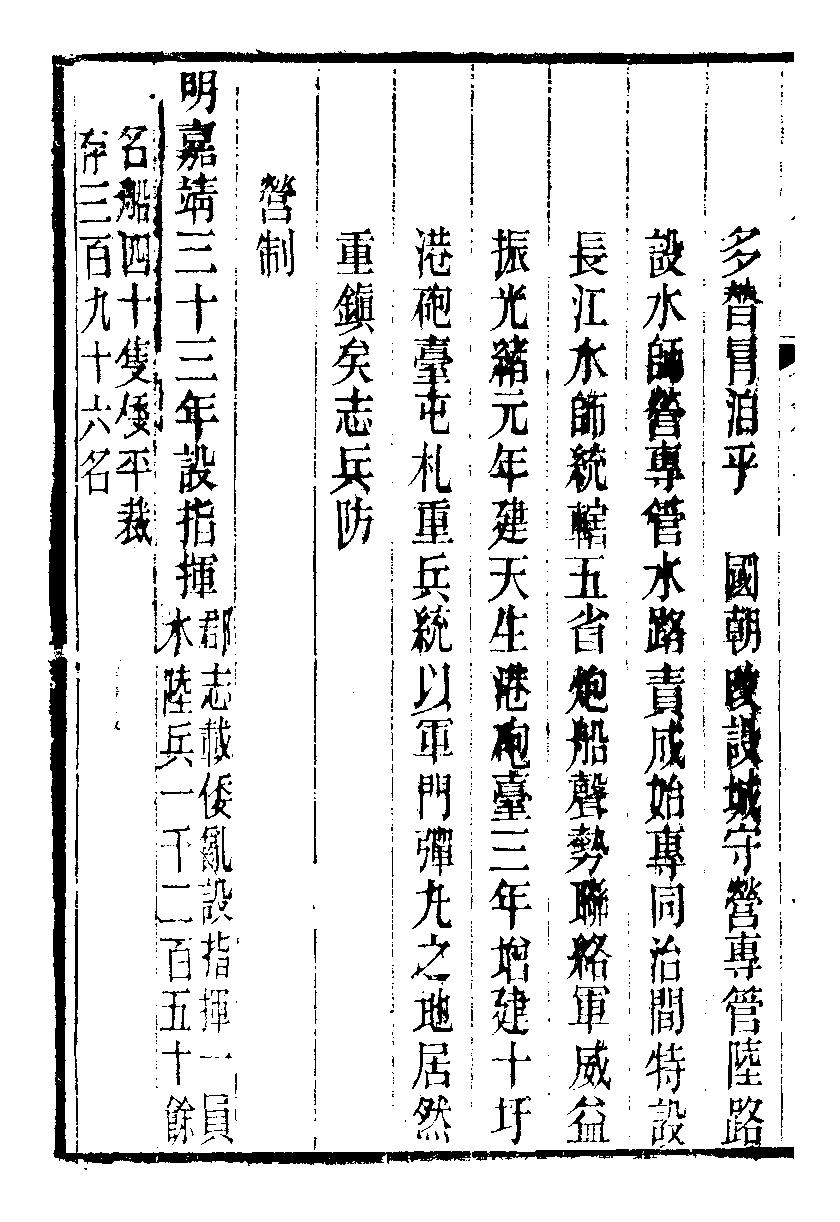 多督胃洎乎　國朝改設城守營專管陸路
設水師營專管水路責成始專同治間特設
長江水師統轄五省炮船聲勢聯絡軍威益
振光緒元年建天生港砲臺三年增建十圩
港砲臺屯札重兵統以軍門彈丸之地居然
重鎮矣志兵防
營制
明嘉靖三十三年設指揮
郡志載倭亂設指揮一員
水陸兵一千二百五十餘
名船四十隻倭平裁
存三百九十六名